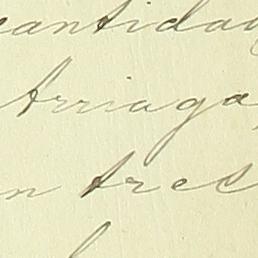 cantidad
Arriaga,
n tres